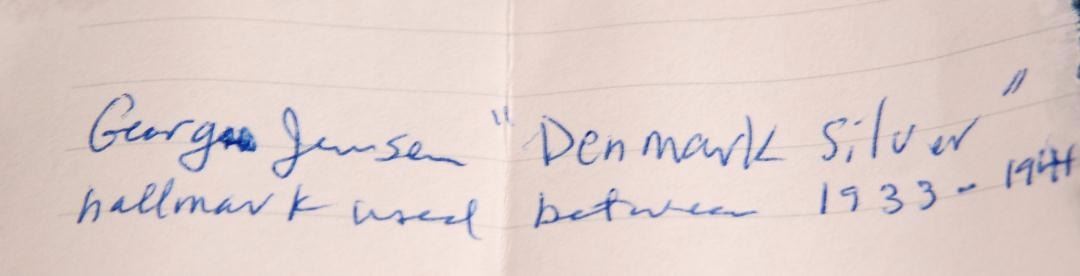 Georg Jensen "Denmark Silver"
hallmark used between 1933 - 1944